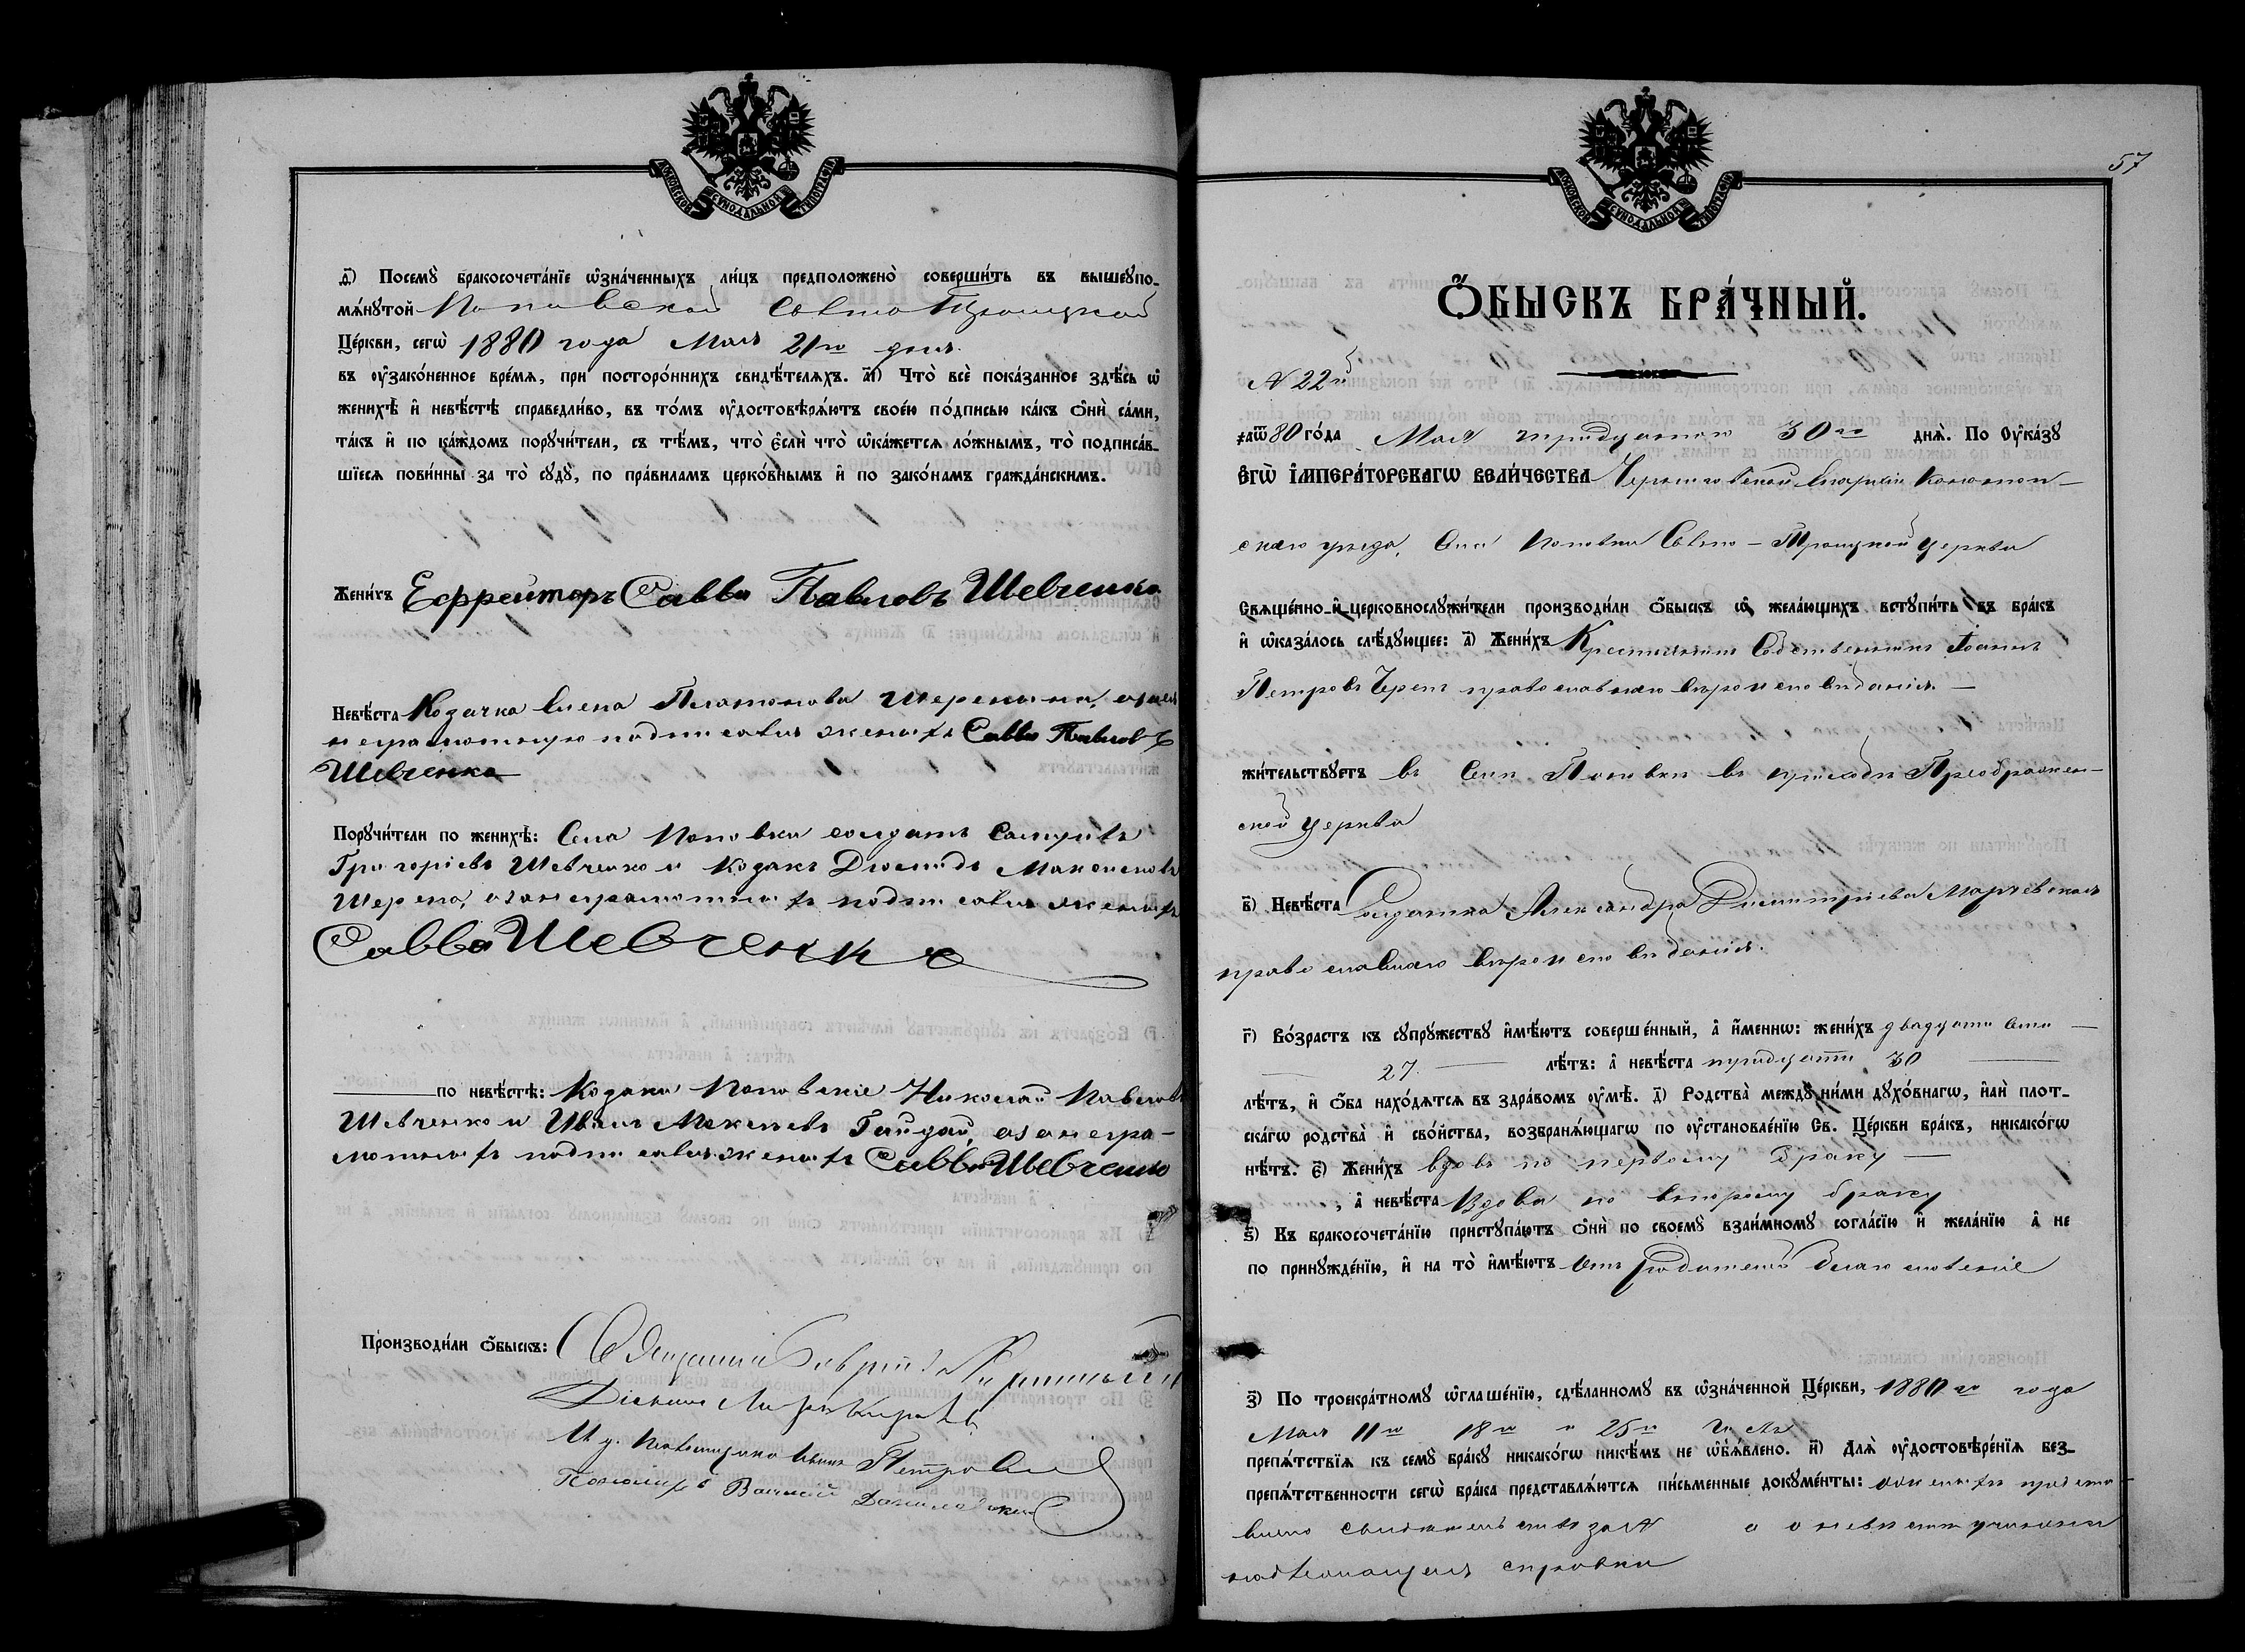 МОСКОВСКОЙ СУНОДАЛЬНОЙ ТИПОГРАФІИ
д҃) Посемꙋ̀ бракосочета́нїе ѡ҆зна́ченныхъ ли́цъ предположено̀ соверши́ть въ вышеꙋпо-
мѧ́нꙋтой Поповской Свято Троицкой
Це́ркви, сегѡ̀ 1880 года Мая 21го дня.
въ ᲂу҆зако́ненное вре́мѧ, при посторо́ннихъ свидѣ́телѧхъ. а҃і) Что̀ всѐ пока́занное здѣ́сь ѡ҆
женихѣ̀ и҆ невѣ́стѣ справедли́во, въ то́мъ ᲂу҆достовѣрѧ́ютъ свое́ю по́дписью ка́къ ѻ҆нѝ са́ми,
та́къ и҆ по ка́ждомъ порꙋчи́тели, съ тѣ́мъ, что̀ є҆слѝ что̀ ѡ҆ка́жетсѧ ло́жнымъ, то̀ подписа́в-
шїесѧ пови́нны за то̀ сꙋдꙋ̀, по пра́виламъ церко́внымъ и҆ по зако́намъ гражда́нскимъ.
Жени́хъ Ефрейторъ Савва Павловъ Шевченко
Невѣ́ста Козачка Елена Платонова Шерекина, а за ея
неграмотную подписался женихъ Савва Павловъ
Шевченко
Порꙋчи́тели по женихѣ̀: Села Поповки солдатъ
Григоріевъ Шевченко и Козакъ Діомидъ
а за неграмотныхъ подписался женихъ
Савва Шевченко
по невѣ́стѣ: Козаки Поповскіе Николай Павловъ
Шевченко и Иванъ Гайдай, а за негра-
мотныхъ подписался женихъ Савва Шевченко
Производи́ли ѻ҆́быскъ: Священникъ
Діаконъ
И. д. Псаломщика Иванъ Петровскій
Пономарь Василій Даниловскій
57
МОСКОВСКОЙ СУНОДАЛЬНОЙ ТИПОГРАФІИ
Ѻ҆́БЫСКЪ БРА́ЧНЫЙ.
№ 22й
҂аѿ80 го́да Мая тридцатаго 30го днѧ̀. По Оу҆ка́зꙋ
Є҆ГѠ̀ І҆МПЕРА́ТОРСКАГѠ ВЕЛИ́ЧЕСТВА Черниговской Епархіи Конотоп-
скаго уѣзда, Села Поповки Свято-Троицкой церкви
Свѧще́нно-и҆ церковнослꙋжи́тели производи́ли ѻ҆́быскъ ѡ҆ жела́ющихъ встꙋпи́ть въ бра́къ
и҆ ѡ҆каза́лось слѣ́дꙋющее: а҃) Жени́хъ Крестьянинъ Собственникъ Іоаннъ
Петровъ Черепъ православнаго вѣроисповѣданія.
жи́тельствꙋетъ въ Селѣ Поповки въ приходѣ Преображен-
ской церкви
в҃) Невѣ́ста Солдатка Александра Димитріева
православнаго вѣроисповѣданія.
г҃) Во́зрастъ къ сꙋпрꙋ́жествꙋ и҆мѣ́ютъ соверше́нный, а҆ и҆́меннѡ: жени́хъ двадцати семи
27. лѣ́тъ: а҆ невѣ́ста тридцати 30
лѣ́тъ, и҆ ѻ҆́ба нахо́дѧтсѧ въ здра́вомъ ᲂу҆мѣ̀. д҃) Родства̀ междꙋ ни́ми дꙋхо́внагѡ, и҆лѝ плот-
ска́гѡ родства̀ и҆ сво́йства, возбранѧ́ющагѡ по ᲂу҆становле́нїю Св. Це́ркви бра́къ, никако́гѡ
нѣ́тъ. є҃) Жени́хъ вдовъ по первому браку
, а҆ невѣ́ста Вдова по второму браку
ѕ҃) Къ бракосочета́нїю пристꙋпа́ютъ ѻ҆нѝ по своемꙋ̀ взаи́мномꙋ согла́сїю и҆ жела́нїю а҆ не
по принꙋжде́нїю, и҆ на то̀ и҆мѣ́ютъ отъ родителей Благословеніе
з҃) По троекра́тномꙋ ѡ҆глаше́нїю, сдѣ́ланномꙋ въ ѡ҆зна́ченной Це́ркви, 1880го года
Мая 11го 18го и 25го
препѧ́тствїѧ къ семꙋ̀ бра́кꙋ никако́гѡ никѣ́мъ не ѡ҆б̾ѧ́влено. и҃) Длѧ̀ ᲂу҆достовѣре́нїѧ без-
препѧ́тственности сегѡ̀ бра́ка представлѧ́ютсѧ пи́сьменные докꙋме́нты: о женихѣ предста-
влено свидѣтельство за № а о невѣстѣ учинена
надлежащая справка